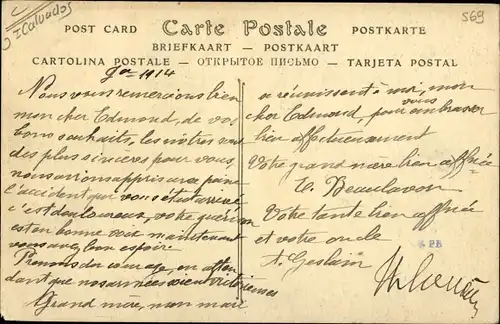 Calvados
569
POST CARD Carte Postale POSTKARTE
BRIEFKAART — POSTKAART
CARTOLINA POSTALE — ОТКРЫТОЕ ПИСЬМО — TARJETA POSTAL
1914
Nous vous remercions bien
mon cher Edmond, de vos
bons souhaits, les nôtres sont
des plus sincères pour vous,
nous avions appris avec peine
l'accident que vous est arrivé
c'est douloureux, votre guérison
est en bonne voie maintenant
vous avez bon espoir.
Prenons du courage, en atten
dant que nos armées soient victorieuses
Grand mère, mon mari
se réunissent à moi, mon
cher Edmond, pour vous embrasser
bien affectueusement
Votre grand mère bien affnée
Beaulavon
Votre tante bien affnée
et votre oncle
A. Geslain
PB